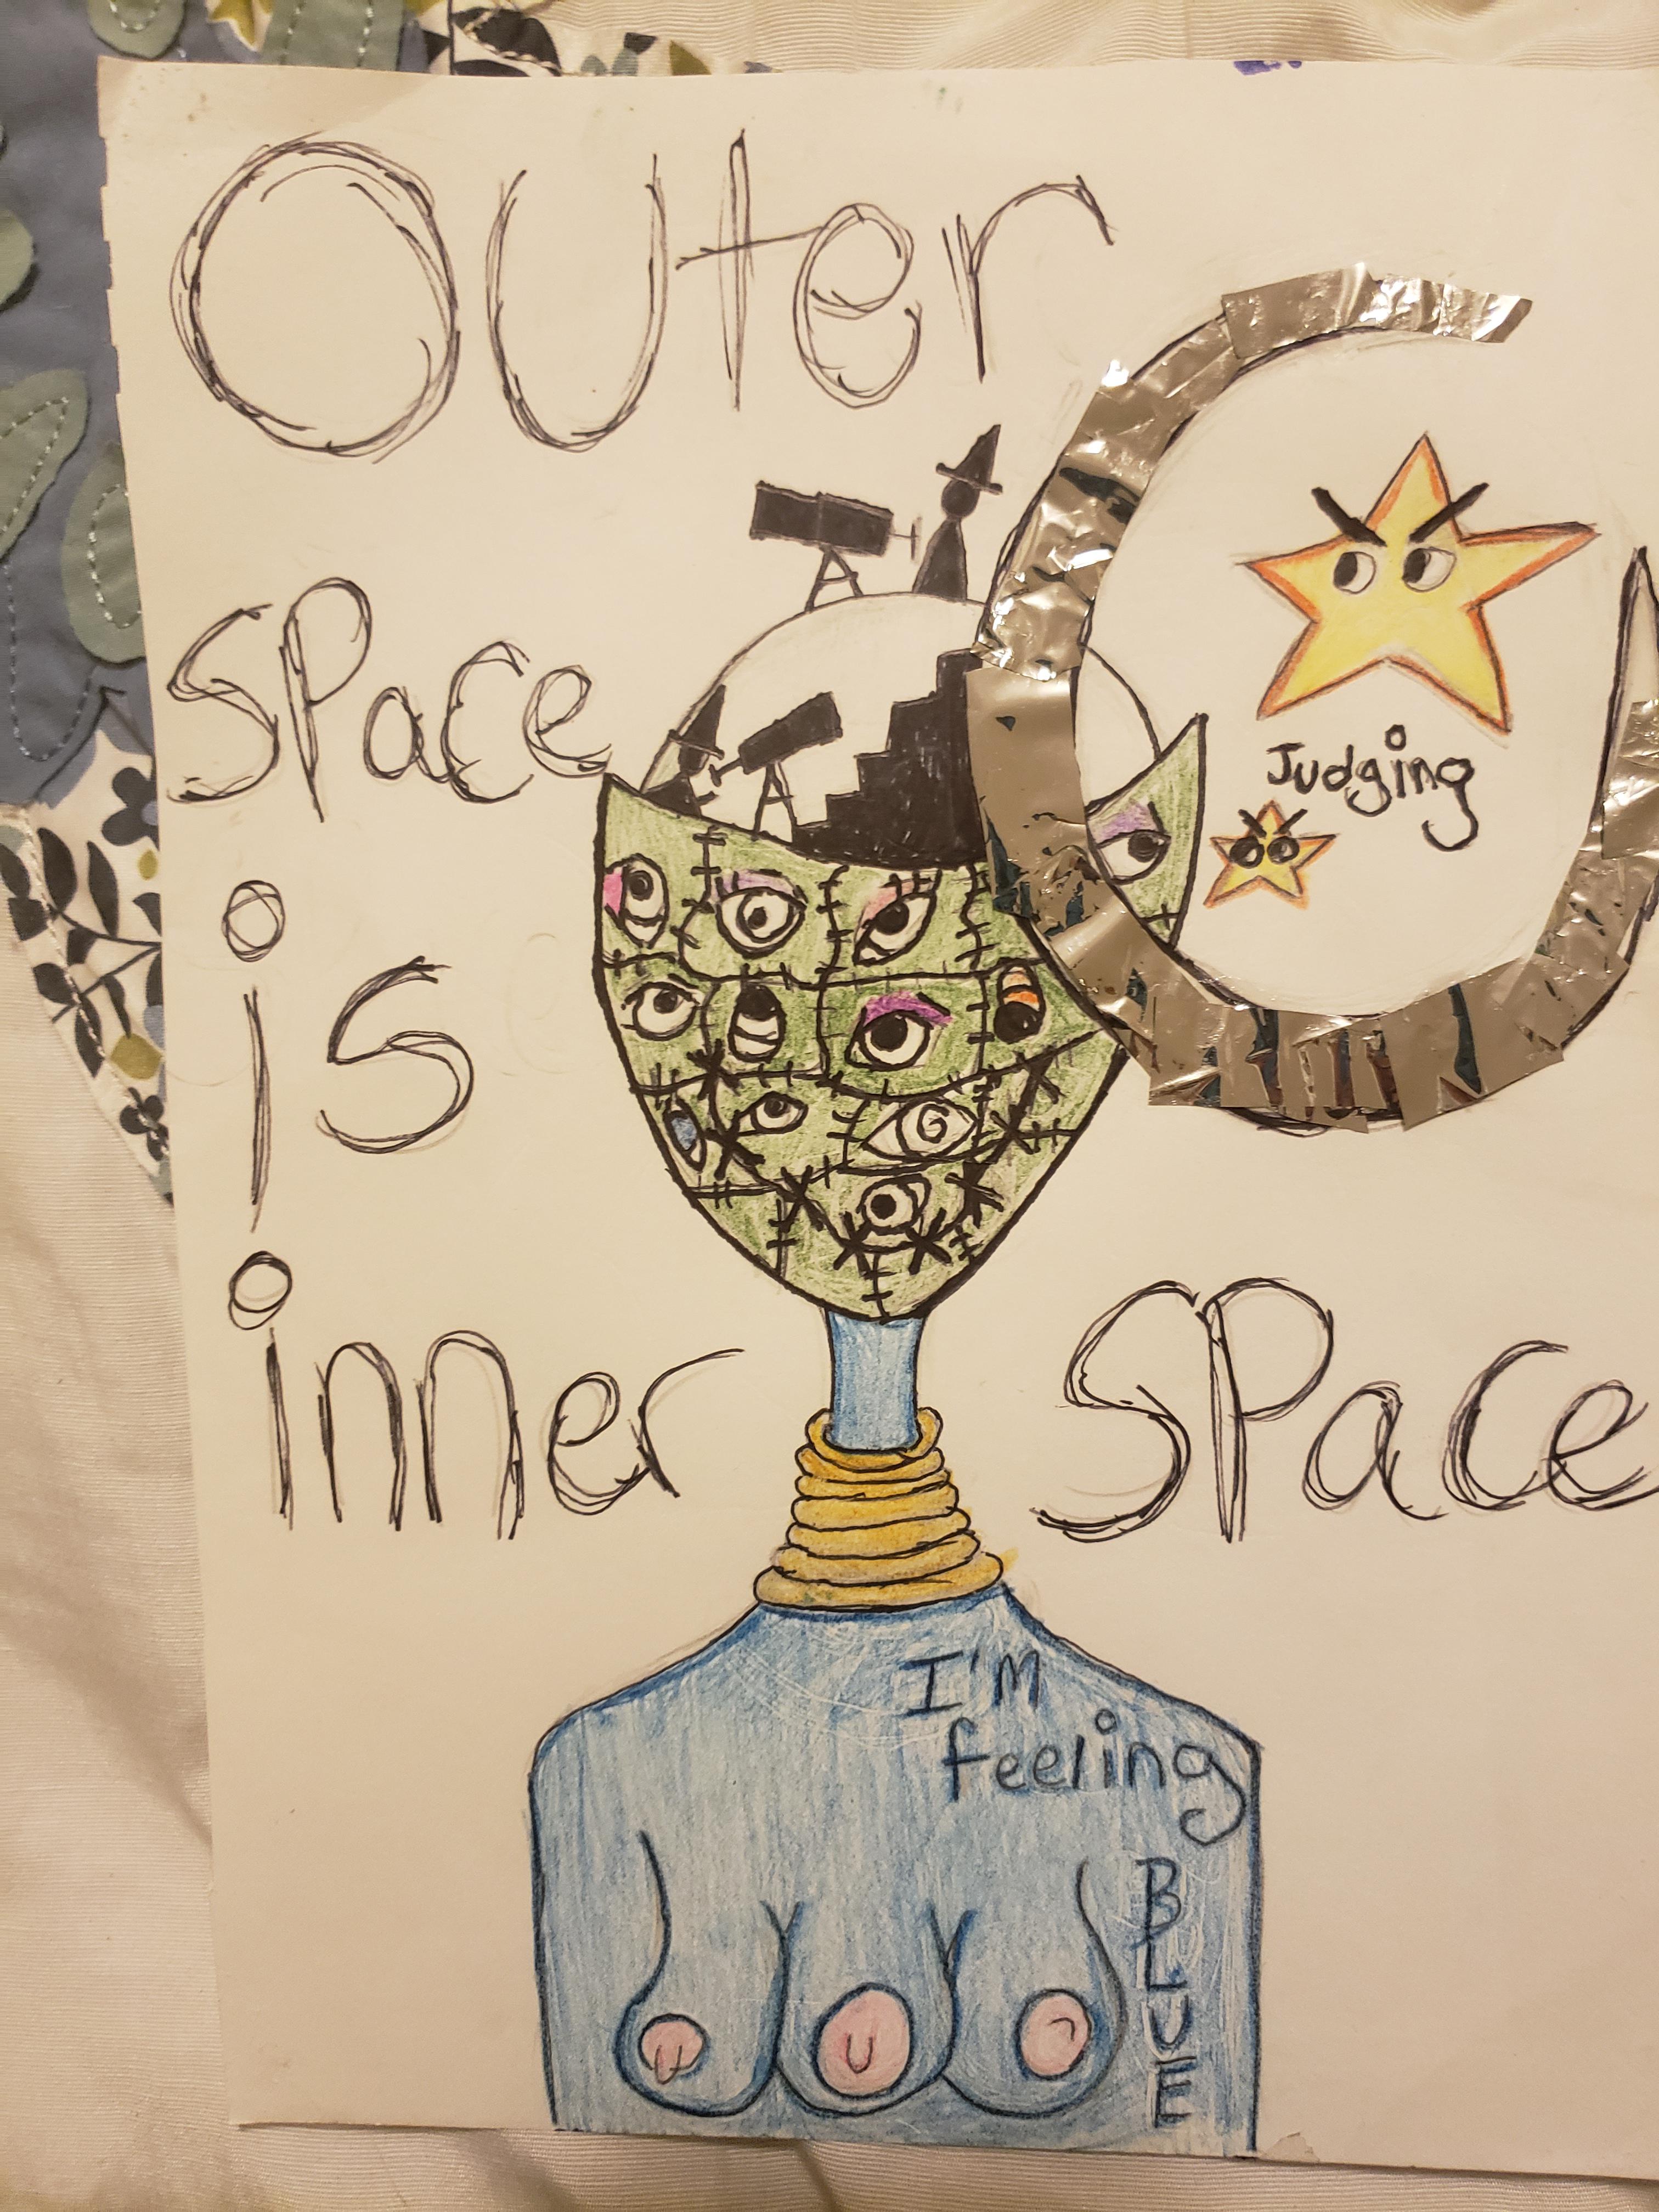 Outer
Space
is
inner Space
Judging
I'm
feeling
BLUE